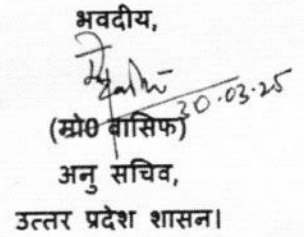 भवदीय,
30.03.25
(मो0 वासिफ)
अनु सचिव,
उत्तर प्रदेश शासन।